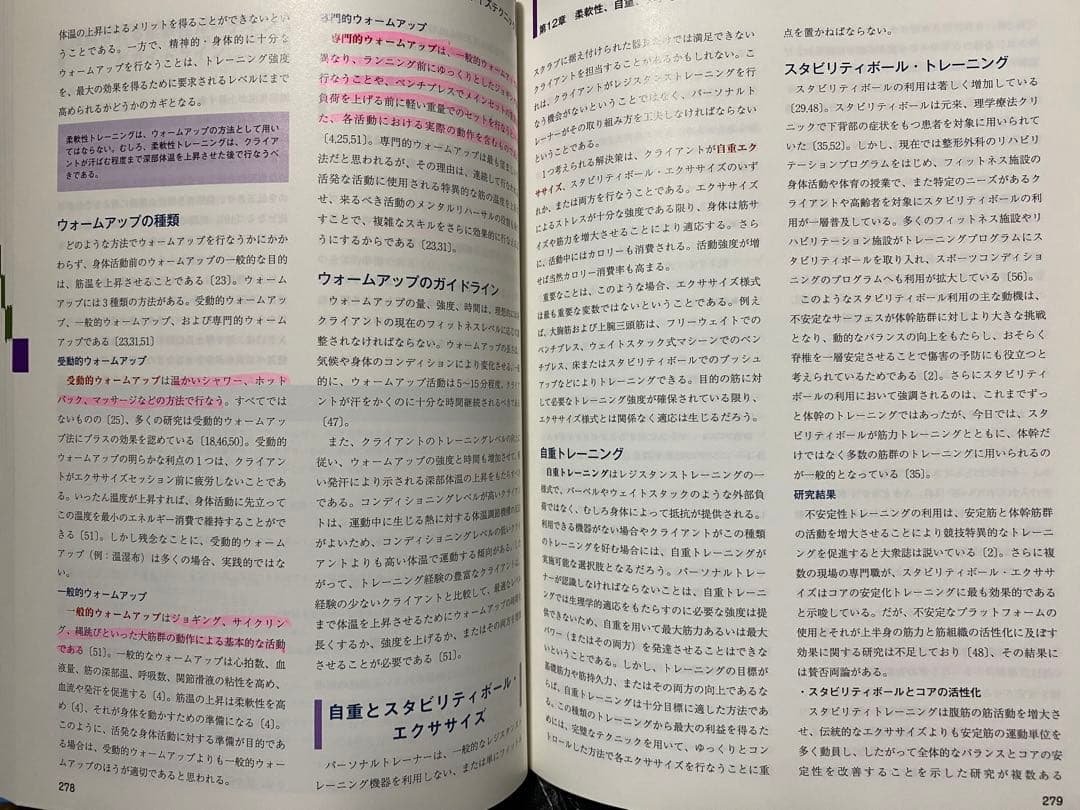 体温の上昇によるメリットを得ることができないとい
うことである。一方で、精神的・身体的に十分な
ウォームアップを行なうことは、トレーニング強度
を、最大の効果を得るために要求されるレベルにまで
高められるかどうかのカギとなる。
柔軟性トレーニングは、ウォームアップの方法として用い
てはならない。むしろ、柔軟性トレーニングは、クライア
ントが汗ばむ程度まで深部体温を上昇させた後で行なうべ
きである。
ウォームアップの種類
どのような方法でウォームアップを行なうかにかか
わらず、身体活動前のウォームアップの一般的な目的
は、筋温を上昇させることである〔23〕。ウォーム
アップには3種類の方法がある。受動的ウォームアッ
プ、一般的ウォームアップ、および専門的ウォーム
アップである〔23,31,51〕
受動的ウォームアップ
受動的ウォームアップは温かいシャワー、ホット
パック、マッサージなどの方法で行なう。すべてでは
ないものの〔25〕、多くの研究は受動的ウォームアッ
プ法にプラスの効果を認めている〔18,46,50〕。受動的
ウォームアップの明らかな利点の1つは、クライアン
トがエクササイズセッション前に疲労しないことであ
る。いったん温度が上昇すれば、身体活動に先立って
この温度を最小のエネルギー消費で維持することがで
きる〔51〕。しかし残念なことに、受動的ウォーム
アップ（例：温湿布）は多くの場合、実践的ではな
い。
一般的ウォームアップ
一般的ウォームアップはジョギング、サイクリン
グ、縄跳びといった大筋群の動作による基本的な活動
である〔51〕。一般的なウォームアップは心拍数、血
液量、筋の深部温、呼吸数、関節滑液の粘性を高め、
血流や発汗を促進する〔4〕。筋温の上昇は柔軟性を高
め〔4〕、それが身体を動かすための準備になる〔4〕。
このように、活発な身体活動に対する準備が目的であ
る場合は、受動的ウォームアップよりも一般的ウォー
ムアップのほうが適切であると思われる。
278
専門的ウォームアップ
専門的ウォームアップは、一般的ウォームアップ
異なり、ランニング前にゆっくりとしたジョギング
行なうことや、ベンチプレスでメインセットの
負荷を上げる前に軽い重量でのセットを行なう
た、各活動における実際の動作を含むもの
〔4,25,51〕。専門的ウォームアップは最も望ましい
法だと思われるが、その理由は、連続して行なわれ
活発な活動に使用される特異的な筋の温度を上
せ、来るべき活動のメンタルリハーサルの役割も
すことで、複雑なスキルをさらに効果的に行なえる
うにするからである〔23,31〕。
ウォームアップのガイドライン
ウォームアップの量、強度、時間は、理想的には
クライアントの現在のフィットネスレベルに応じて
整されなければならない。ウォームアップの
気候や身体のコンディションにより変化させる。一
的に、ウォームアップ活動は5～15分程度、クライ
ントが汗をかくのに十分な時間継続されるべきであ
〔47〕。
また、クライアントのトレーニングレベルの向上に
従い、ウォームアップの強度と時間も増加させて、
い発汗により示される深部体温の上昇をもたらす
である。コンディショニングレベルが高いクライアン
トは、運動中に生じる熱に対する体温調節機構の
がよいため、コンディショニングレベルの低いクライ
アントよりも高い体温で運動する傾向がある。した
がって、トレーニング経験の豊富なクライアントに
経験の少ないクライアントと比較して、最適なレベル
まで体温を上昇させるためにウォームアップの時間を
長くするか、強度を上げるか、またはその両方を増加
させることが必要である〔51〕。
自重とスタビリティボール・
エクササイズ
パーソナルトレーナーは、一般的なレジスタンスト
レーニング機器を利用しない、または単にフィットネ
第12章 柔軟性、自重、
スクラブに据え付けられた器具だけでは満足できない
クライアントを担当することがあるかもしれない。こ
れは、クライアントがレジスタンストレーニングを行
なう機会がないということではなく、パーソナルト
レーナーがその取り組み方を工夫しなければならない
ということである。
1つ考えられる解決策は、クライアントが自重エク
ササイズ、スタビリティボール・エクササイズのいず
れか、または両方を行なうことである。エクササイズ
によるストレスが十分な強度である限り、身体は筋サ
イズや筋力を増大させることにより適応する。さら
に、活動中にはカロリーも消費される。活動強度が増
せば当然カロリー消費率も高まる。
重要なことは、このような場合、エクササイズ様式
は最も重要な変数ではないということである。例え
ば、大胸筋および上腕三頭筋は、フリーウェイトでの
ベンチプレス、ウェイトスタック式マシーンでのベン
チプレス、床またはスタビリティボールでのプッシュ
アップなどによりトレーニングできる。目的の筋に対
して必要なトレーニング強度が確保されている限り、
エクササイズ様式とは関係なく適応は生じるだろう。
自重トレーニング
自重トレーニングはレジスタンストレーニングの一
様式で、バーベルやウェイトスタックのような外部負
荷ではなく、むしろ身体によって抵抗が提供される。
利用できる機器がない場合やクライアントがこの種類
のトレーニングを好む場合には、自重トレーニングが
実施可能な選択肢となるだろう。パーソナルトレー
ナーが認識しなければならないことは、自重トレーニ
ングでは生理学的適応をもたらすのに必要な強度は提
供できないため、自重を用いて最大筋力あるいは最大
パワー（またはその両方）を発達させることはできな
いということである。しかし、トレーニングの目標が
基礎筋力や筋持久力、またはその両方の向上であるな
らば、自重トレーニングは十分目標に適した方法であ
る。この種類のトレーニングから最大の利益を得るた
めには、完璧なテクニックを用いて、ゆっくりとコン
トロールした方法で各エクササイズを行なうことに重
点を置かねばならない。
スタビリティボール・トレーニング
スタビリティボールの利用は著しく増加している
〔29,48〕。スタビリティボールは元来、理学療法クリ
ニックで下背部の症状をもつ患者を対象に用いられて
いた〔35,52〕。しかし、現在では整形外科のリハビリ
テーションプログラムをはじめ、フィットネス施設の
身体活動や体育の授業で、また特定のニーズがあるク
ライアントや高齢者を対象にスタビリティボールの利
用が一層普及している。多くのフィットネス施設やリ
ハビリテーション施設がトレーニングプログラムにス
タビリティボールを取り入れ、スポーツコンディショ
ニングのプログラムへも利用が拡大している〔56〕。
このようなスタビリティボール利用の主な動機は、
不安定なサーフェスが体幹筋群に対しより大きな挑戦
となり、動的なバランスの向上をもたらし、おそらく
脊椎を一層安定させることで傷害の予防にも役立つと
考えられているためである〔2〕。さらにスタビリティ
ボールの利用において強調されるのは、これまでずっ
と体幹のトレーニングではあったが、今日では、スタ
ビリティボールが筋力トレーニングとともに、体幹だ
けではなく多数の筋群のトレーニングに用いられるの
が一般的となっている〔35〕。
研究結果
不安定性トレーニングの利用は、安定筋と体幹筋群
の活動を増大させることにより競技特異的なトレーニ
ングを促進すると大衆誌は説いている〔2〕。さらに複
数の現場の専門職が、スタビリティボール・エクササ
イズはコアの安定化トレーニングに最も効果的である
と示唆している。だが、不安定なプラットフォームの
使用とそれが上半身の筋力と筋組織の活性化に及ぼす
効果に関する研究は不足しており〔48〕、その結果に
は賛否両論がある。
・スタビリティボールとコアの活性化
スタビリティトレーニングは腹筋の筋活動を増大さ
せ、伝統的なエクササイズよりも安定筋の運動単位を
多く動員し、したがって全体的なバランスとコアの安
定性を改善することを示した研究が複数ある
279